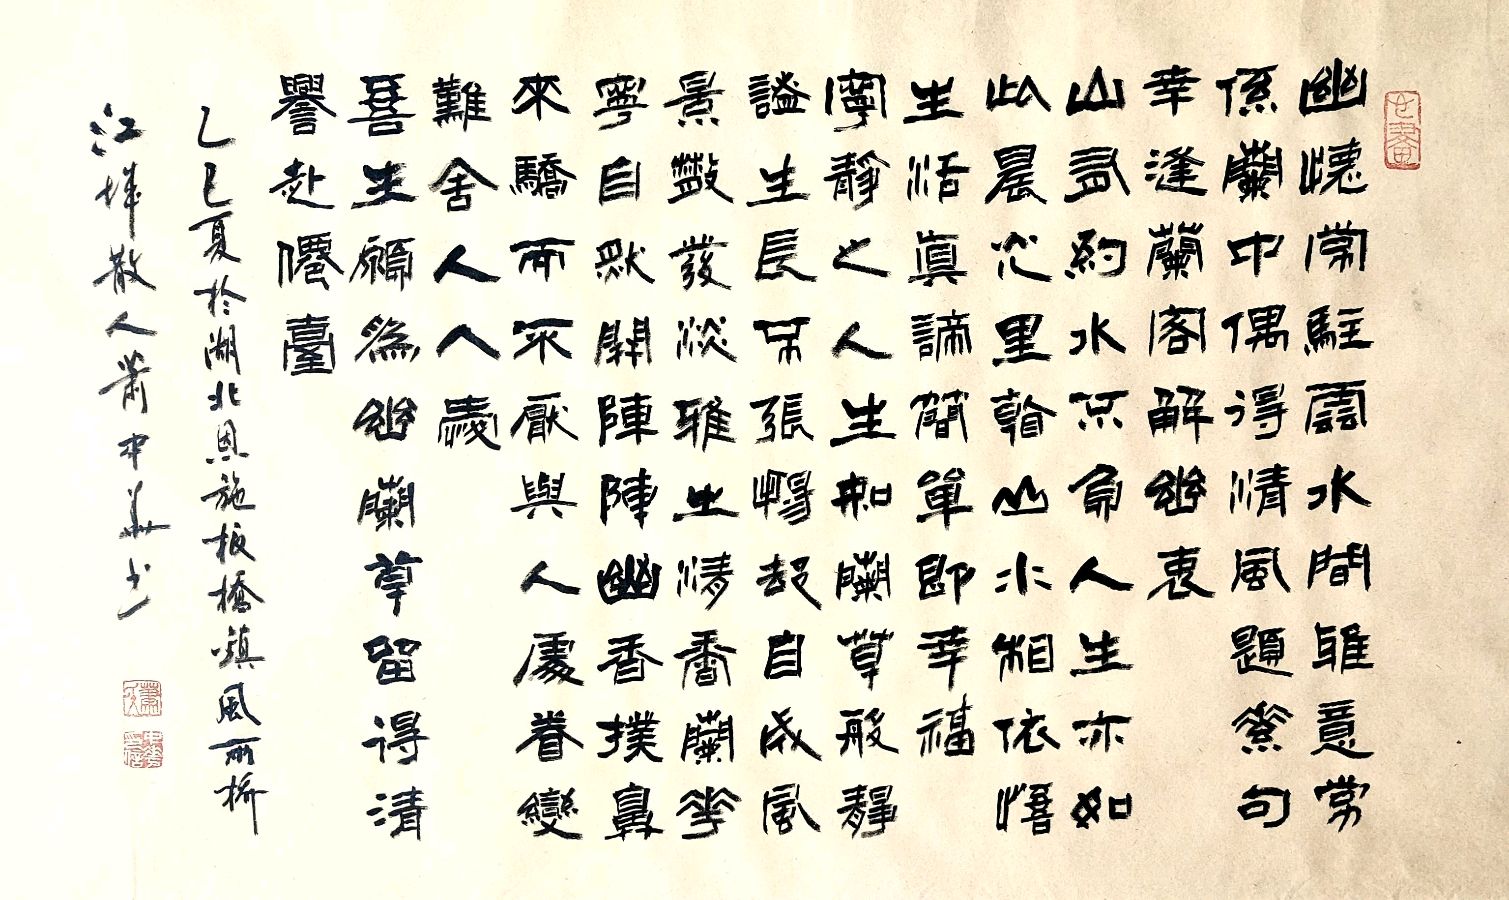 幽懷常駐雲水間雅意常
係蘭中偶得清風題素句
幸逢蘭閣解幽衷
山有約水不負人生亦如
此晨光里翰山水相依悟
生活真諦簡單即幸福
寧靜之人生如蘭草般靜
謐生長不張暢却自成風
景散發淡雅之清香蘭花
寧自然開陣陣幽香撲鼻
來驕而不厭與人處眷戀
難舍人人愛
吾生願為幽蘭草留得清
譽赴僊臺
乙巳夏於湖北恩施板橋鎮風雨橋
江城散人蕭中華書